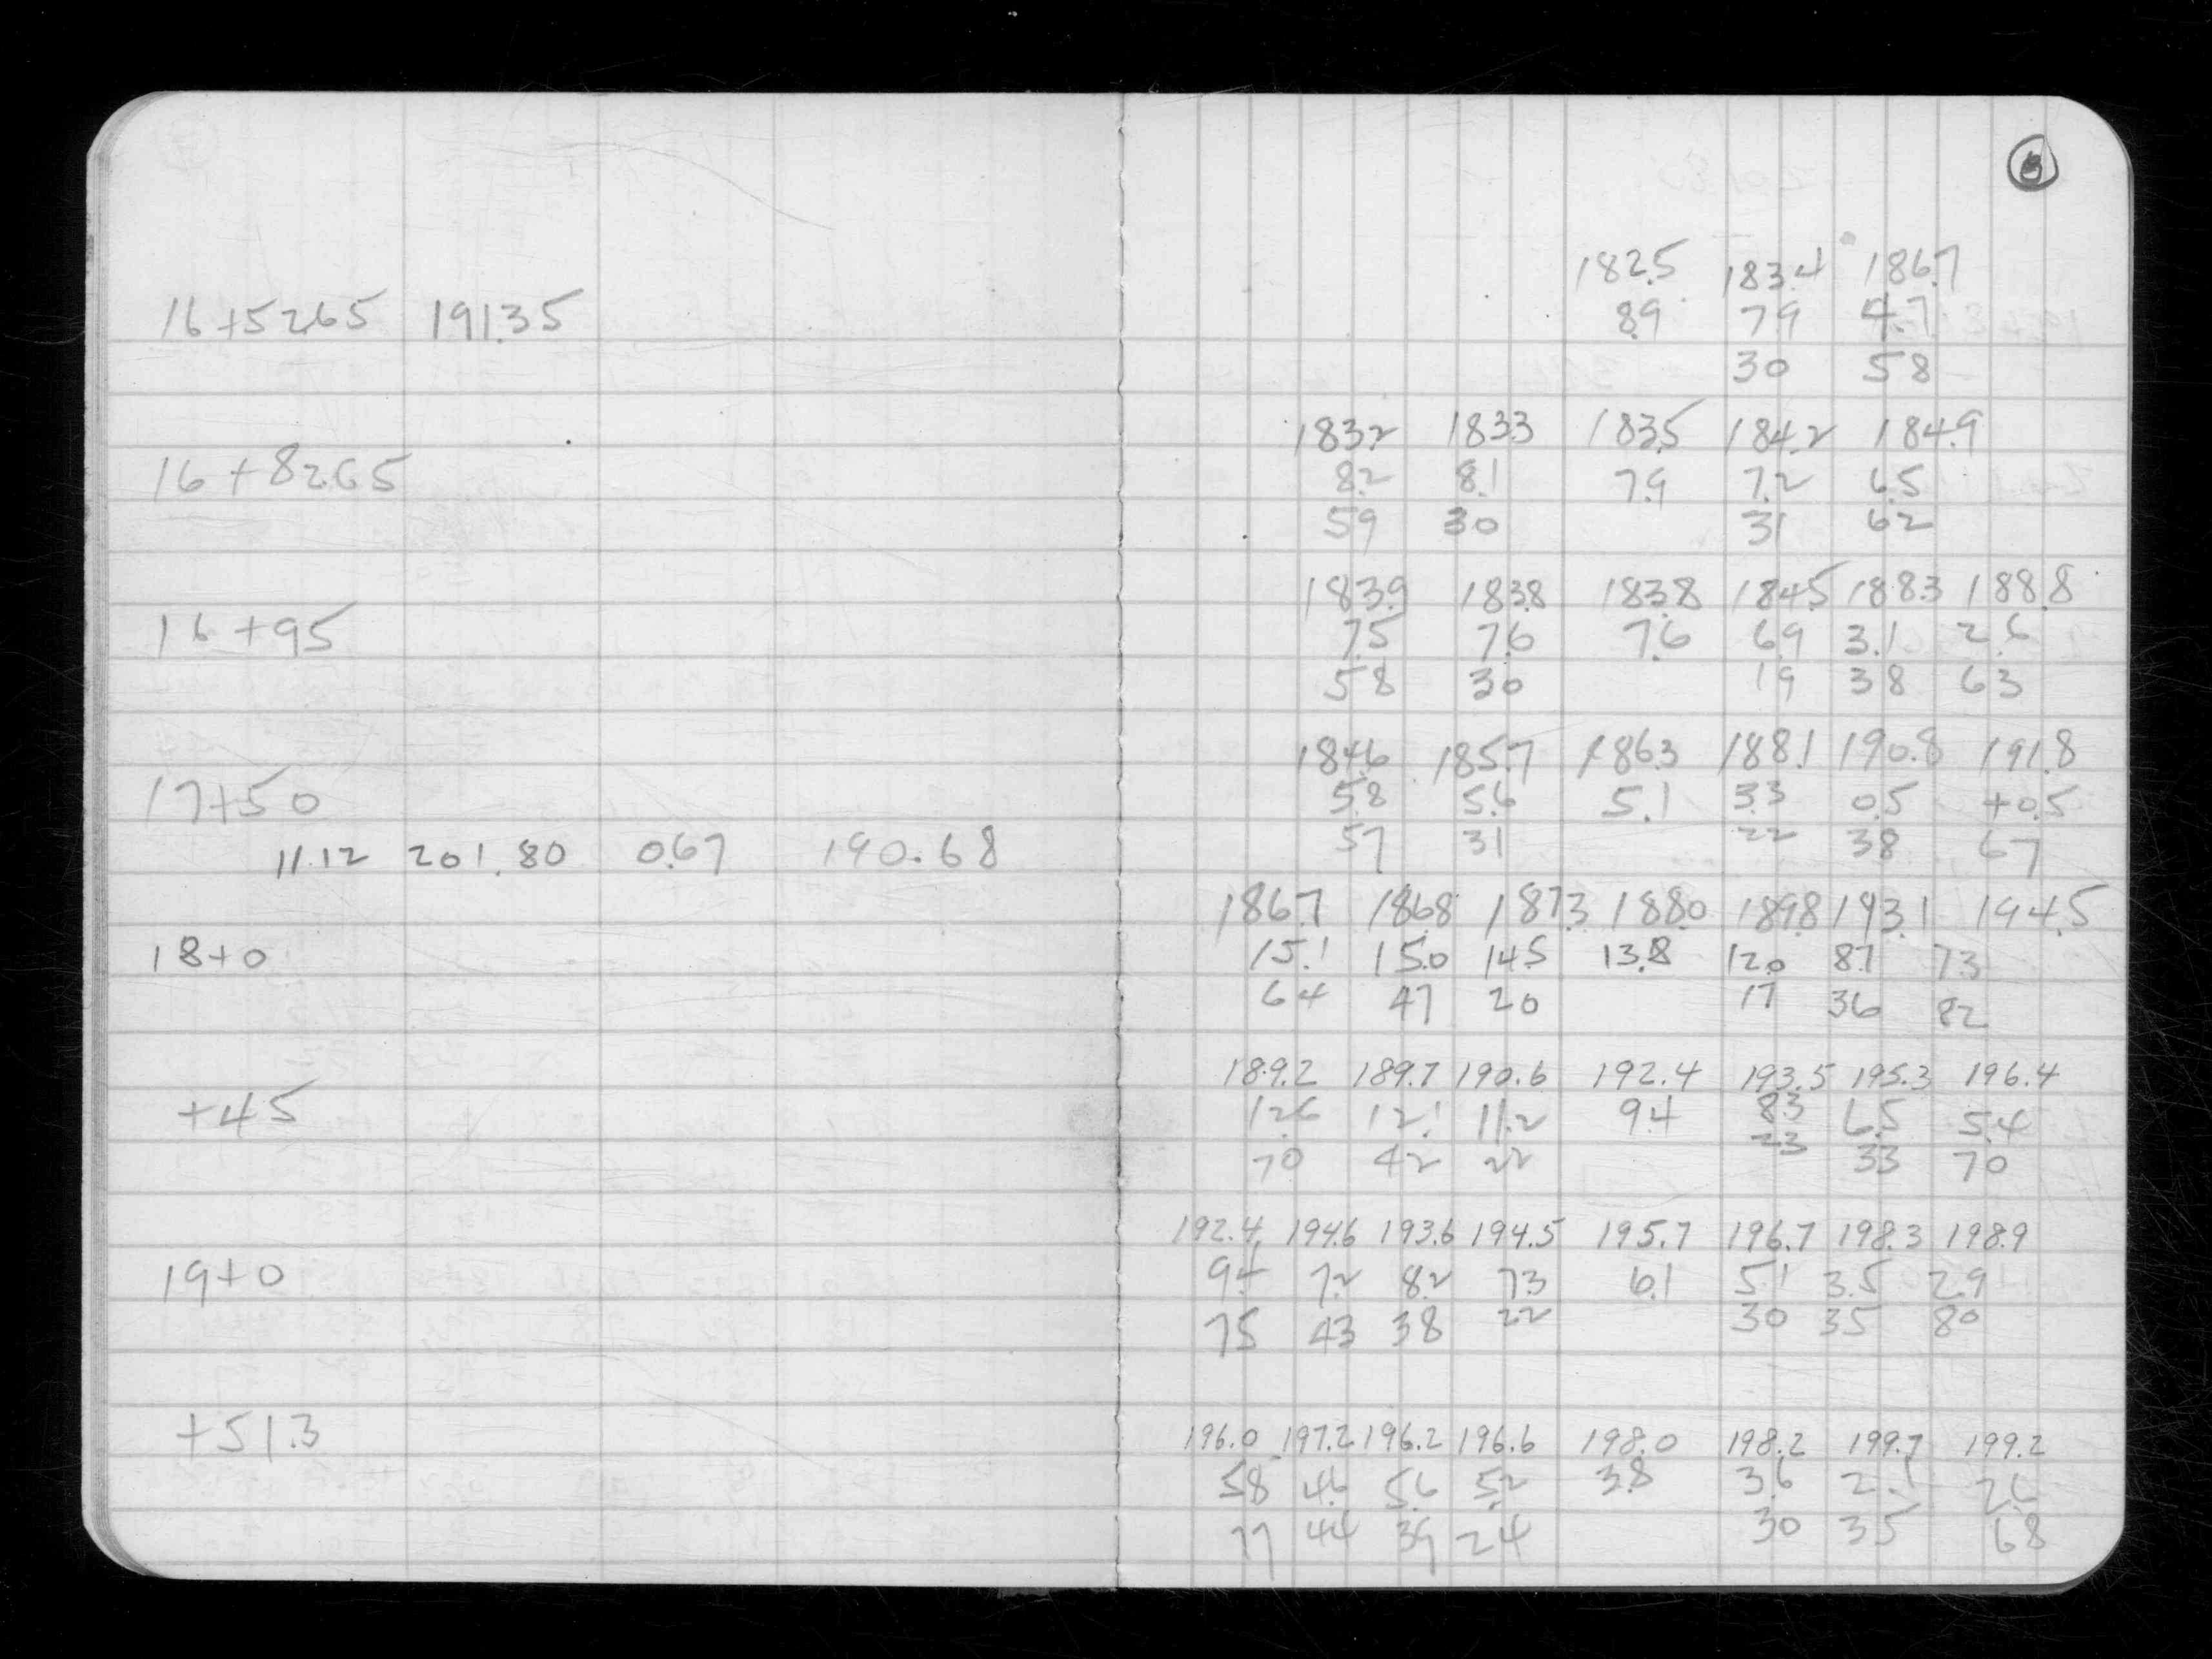 16+5265 191.35
16+8265
16+95
17+50
11.12 201.80 0.67 190.68
18+0
+45
19+0
+51.3
182.5 183.4 186.7
8.9 7.9 4.7
30 58
183.2 183.3 183.5 184.2 184.9
8.2 8.1 7.9 7.2 6.5
59 30 31 62
183.9 183.8 183.8 184.5 188.3 188.8
7.5 7.6 7.6 6.9 3.1 2.6
58 30 19 38 63
184.6 185.7 186.3 188.1 190.8 191.8
5.8 5.6 5.1 3.3 0.5 +0.5
57 31 22 38 67
186.7 186.8 187.3 188.0 189.8 193.1 194.5
15.1 15.0 14.5 13.8 12.0 8.7 7.3
64 47 20 17 36 82
189.2 189.7 190.6 192.4 193.5 195.3 196.4
12.6 12.1 11.2 9.4 8.3 6.5 5.4
70 42 22 23 33 70
192.4 194.6 193.6 194.5 195.7 196.7 198.3 198.9
9.4 7.2 8.2 7.3 6.1 5.1 3.5 2.9
75 43 38 22 30 35 80
196.0 197.2 196.2 196.6 198.0 198.2 199.7 199.2
5.8 4.6 5.6 5.2 3.8 3.6 2.1 2.6
77 44 39 24 30 35 68